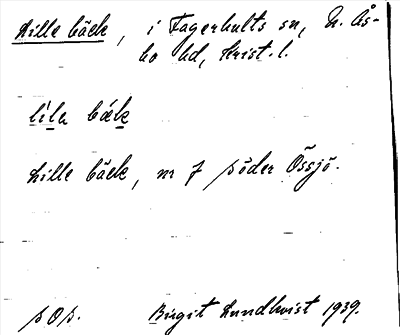 Lille bäck, i Fagerhults sn, N. Ås-
bo hd, Krist. l.
lila bäk
Lille bäck, m f söder Össjö.
s O s. Birgit Lundkvist 1939.